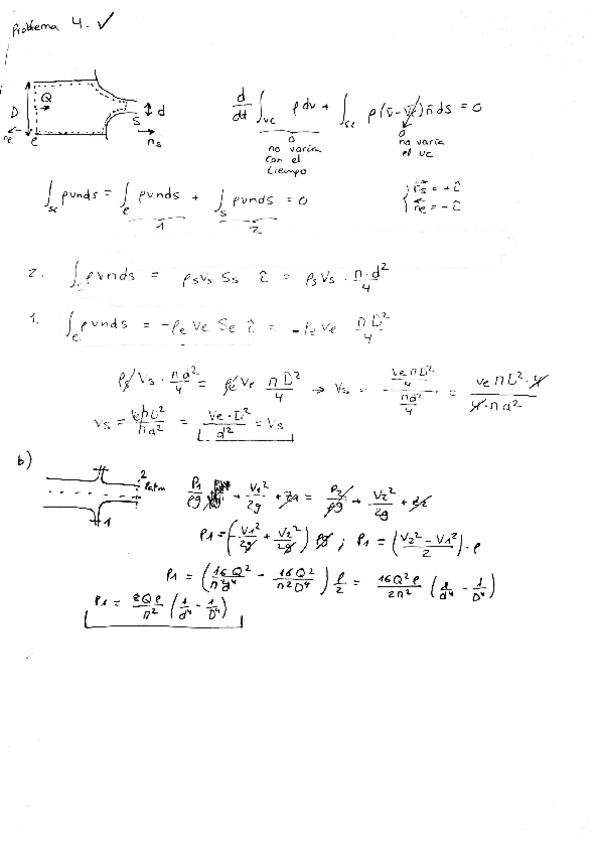 Problema 4. ✓
D Q d
e S n_s
n_e
d/dt ∫_vc ρ dv + ∫_sc ρ(v̄ - v̄c) n̄ ds = 0
0 no varia con el tiempo
0 no varia el VC
∫_sc ρvnds = ∫_e ρvnds + ∫_s ρvnds = 0
1 2
{ n_s = + î
n_e = - î
2. ∫_s ρvnds = ρs vs Ss î = ρs Vs · π·d²/4
1. ∫_e ρvnds = -ρe Ve Se î = -ρe Ve πD²/4
ρs Vs · πd²/4 = ρe Ve πD²/4 → Vs = - (Ve πD²/4)/(πd²/4) = Ve πD²·4/4·πd²
Vs = VeπD²/πd² = Ve·D²/d² = Vs
b)
2 Patm
1
P1/ρg + V1²/2g + z1 = P2/ρg + V2²/2g + z2
P1 = (-V1²/2g + V2²/2g) ρg ; P1 = (V2² - V1²/2) · ρ
P1 = (16Q²/π²d⁴ - 16Q²/π²D⁴) ρ/2 = 16Q²ρ/2π² (1/d⁴ - 1/D⁴)
P1 = 8Qρ/π² (1/d⁴ - 1/D⁴)